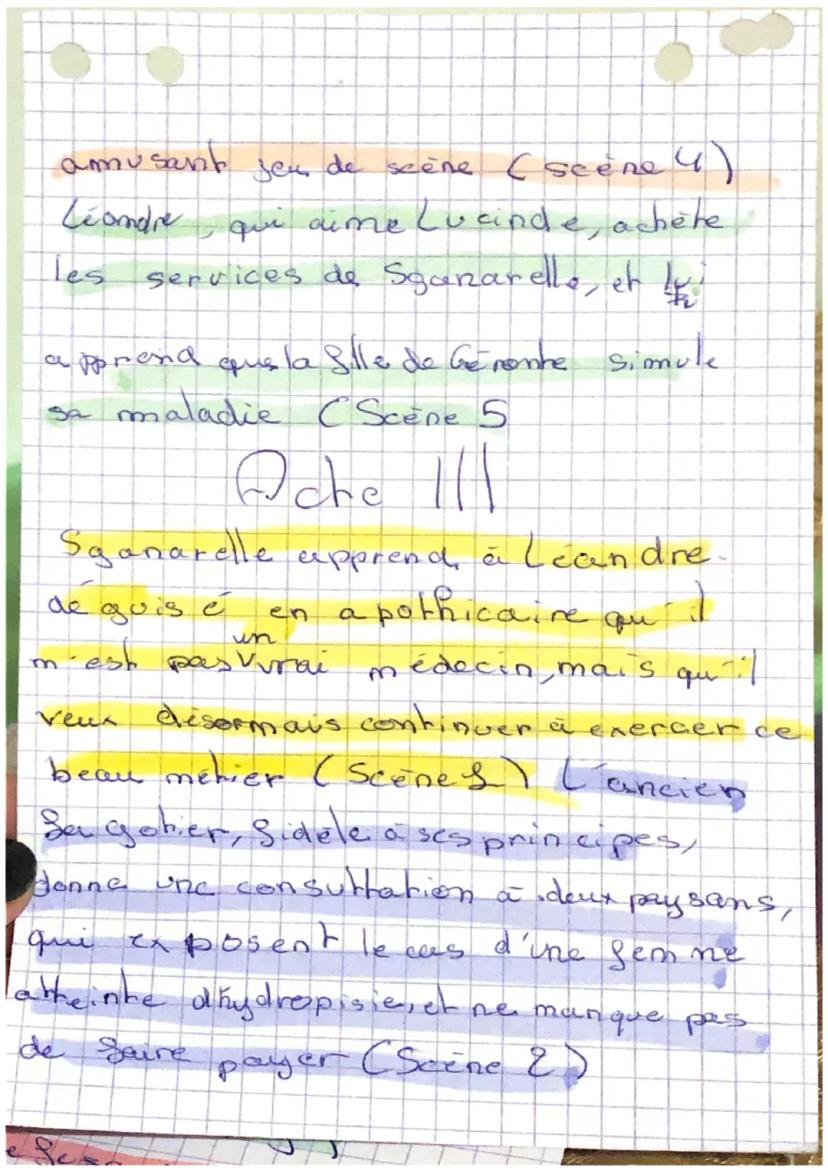 amusant jeu de scène (scène 4)
Léandre, qui aime Lucinde, achète
les services de Sganarelle, et lui
apprend que la fille de Géronte simule
sa maladie (Scène 5
Acte III
Sganarelle apprend à Léandre
déguisé en apothicaire qu'il
n'est pas un vrai médecin, mais qu'il
veux désormais continuer à exercer ce
beau métier (Scène 1) L'ancien
fagotier, fidèle à ses principes,
donne une consultation à deux paysans,
qui exposent le cas d'une femme
atteinte d'hydropisie, et ne manque pas
de faire payer (Scène 2)